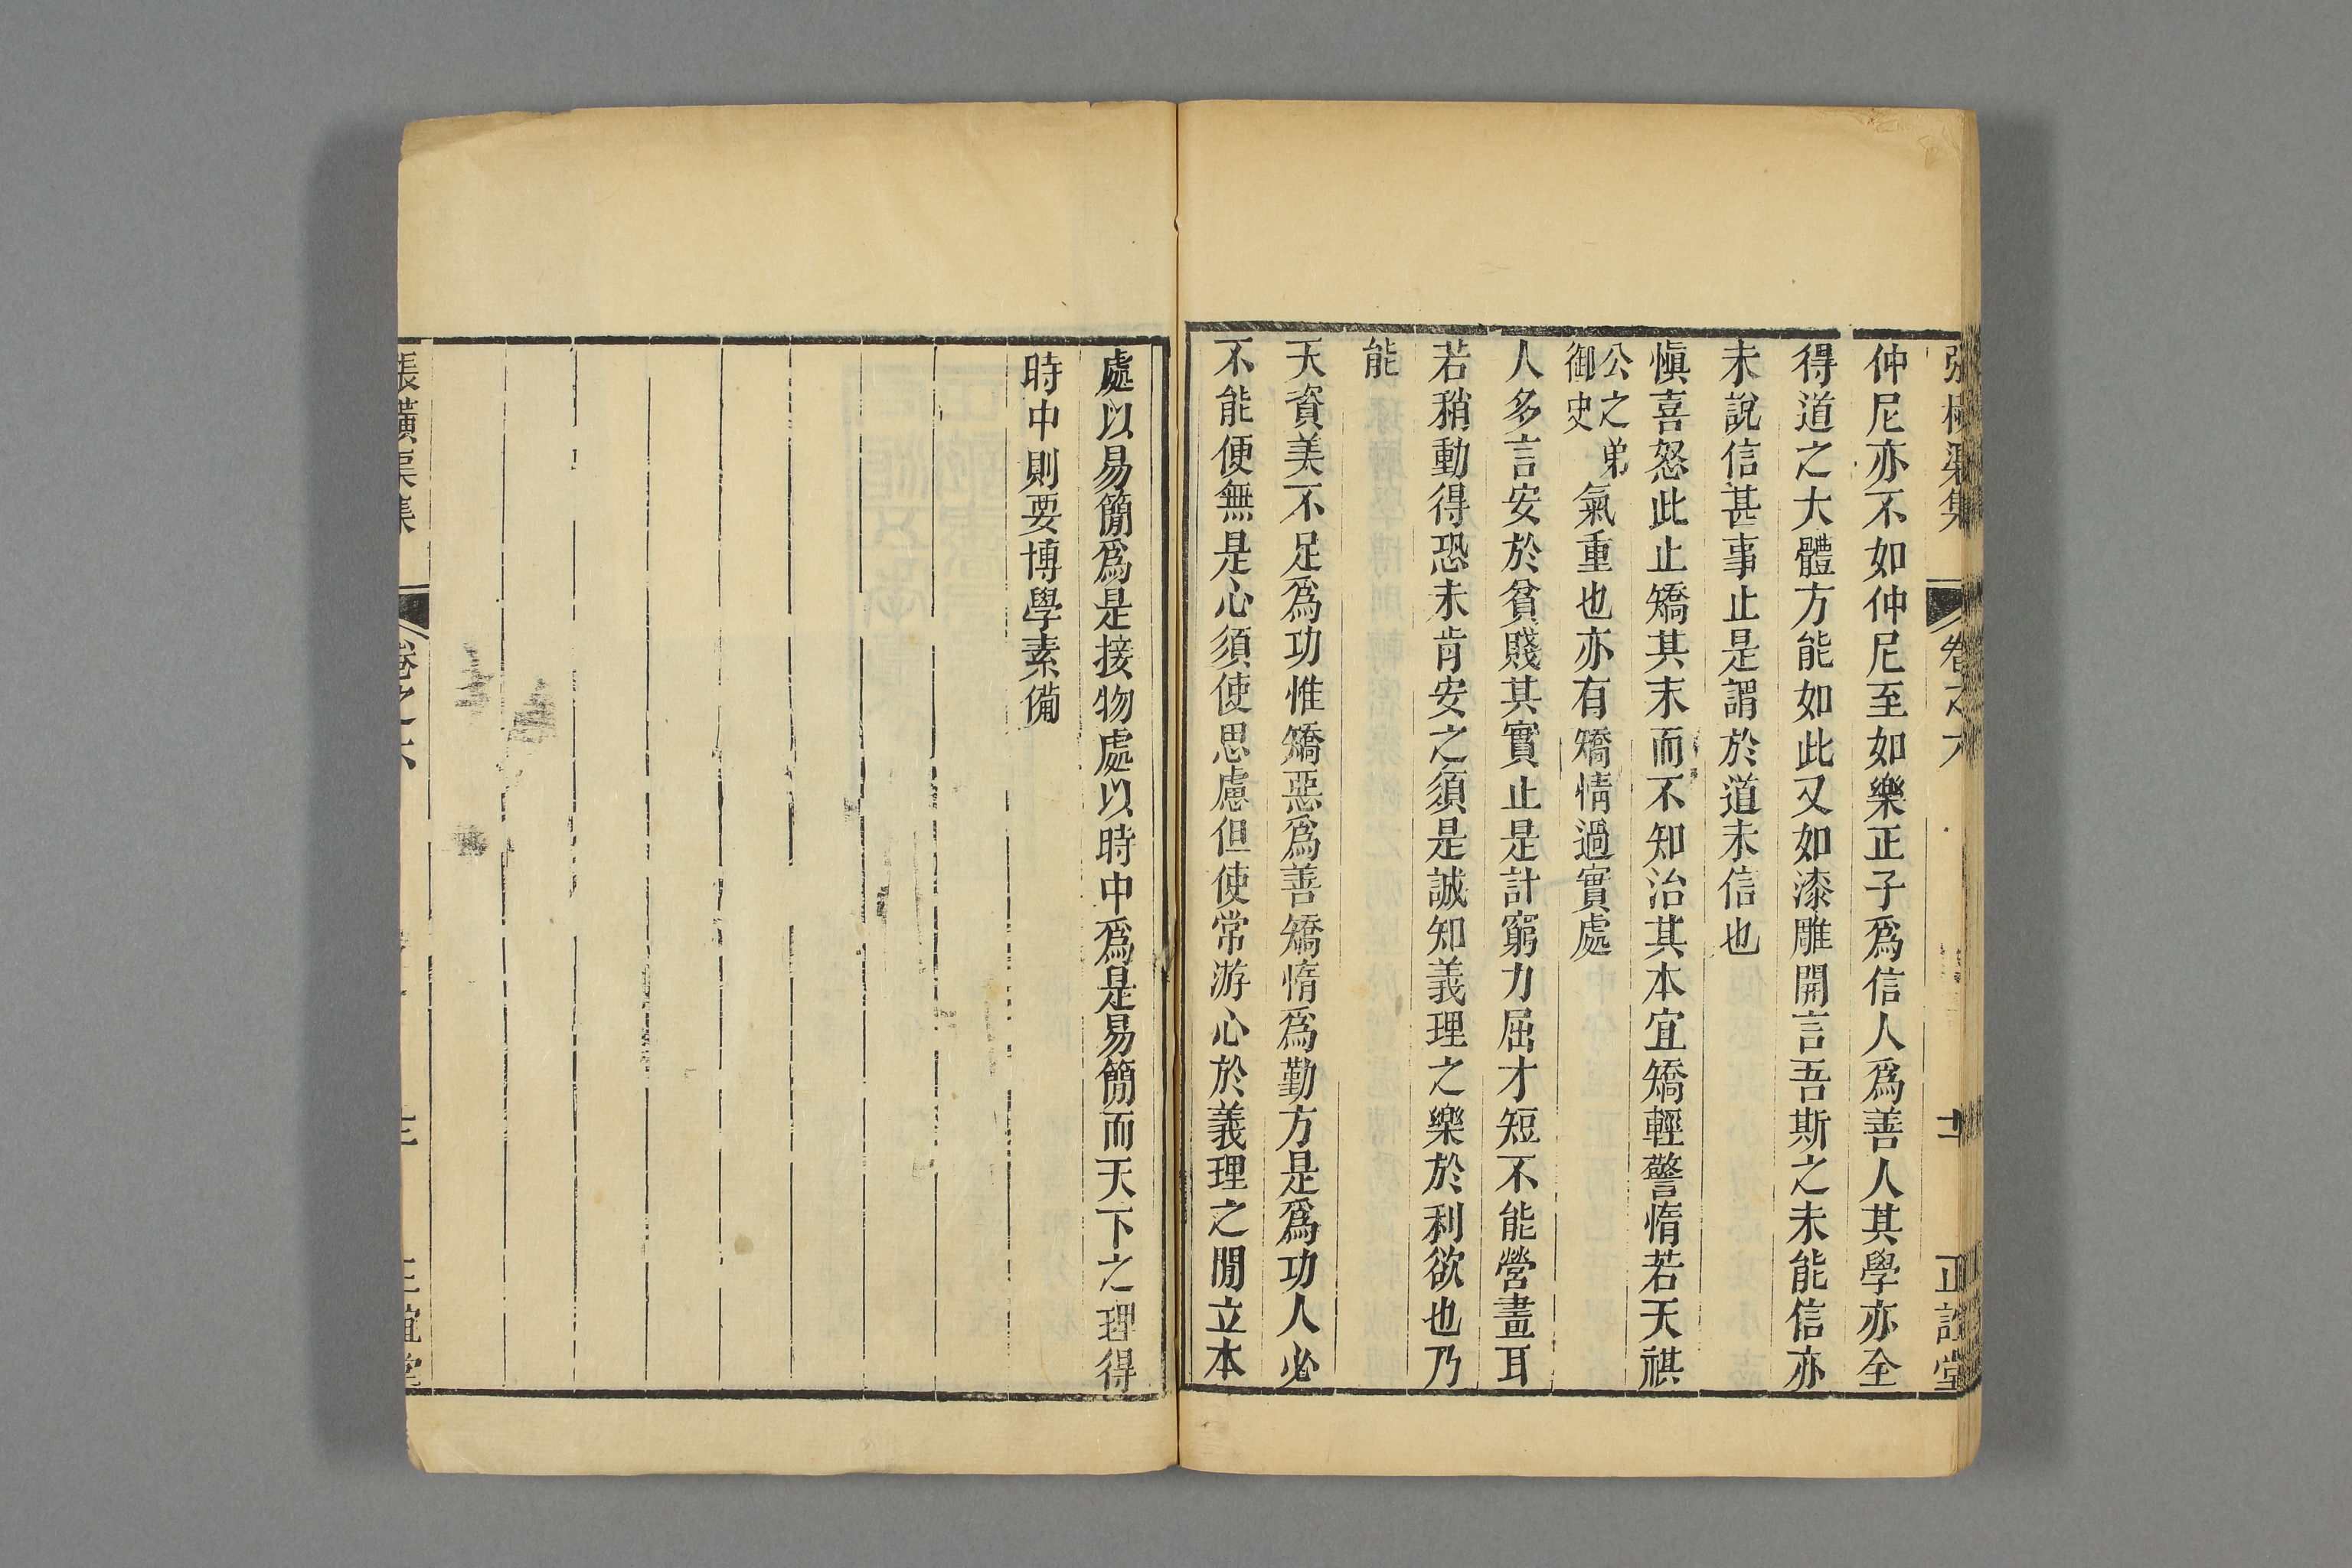 張橫渠集 卷之六 十 正誼堂
仲尼亦不如仲尼至如樂正子爲信人爲善人其學亦全
得道之大體方能如此又如漆雕開言吾斯之未能信亦
未說信甚事止是謂於道未信也
愼喜怒此止矯其末而不知治其本宜矯輕警惰若天祺
公之弟御史氣重也亦有矯情過實處
人多言安於貧賤其實止是計窮力屈才短不能營畫耳
若稍動得恐未肯安之須是誠知義理之樂於利欲也乃
能
天資美不足爲功惟矯惡爲善矯惰爲勤方是爲功人必
不能便無是心須使思慮但使常游心於義理之閒立本
處以易簡爲是接物處以時中爲是易簡而天下之理得
時中則要博學素備
張橫渠集 卷之六 正誼堂